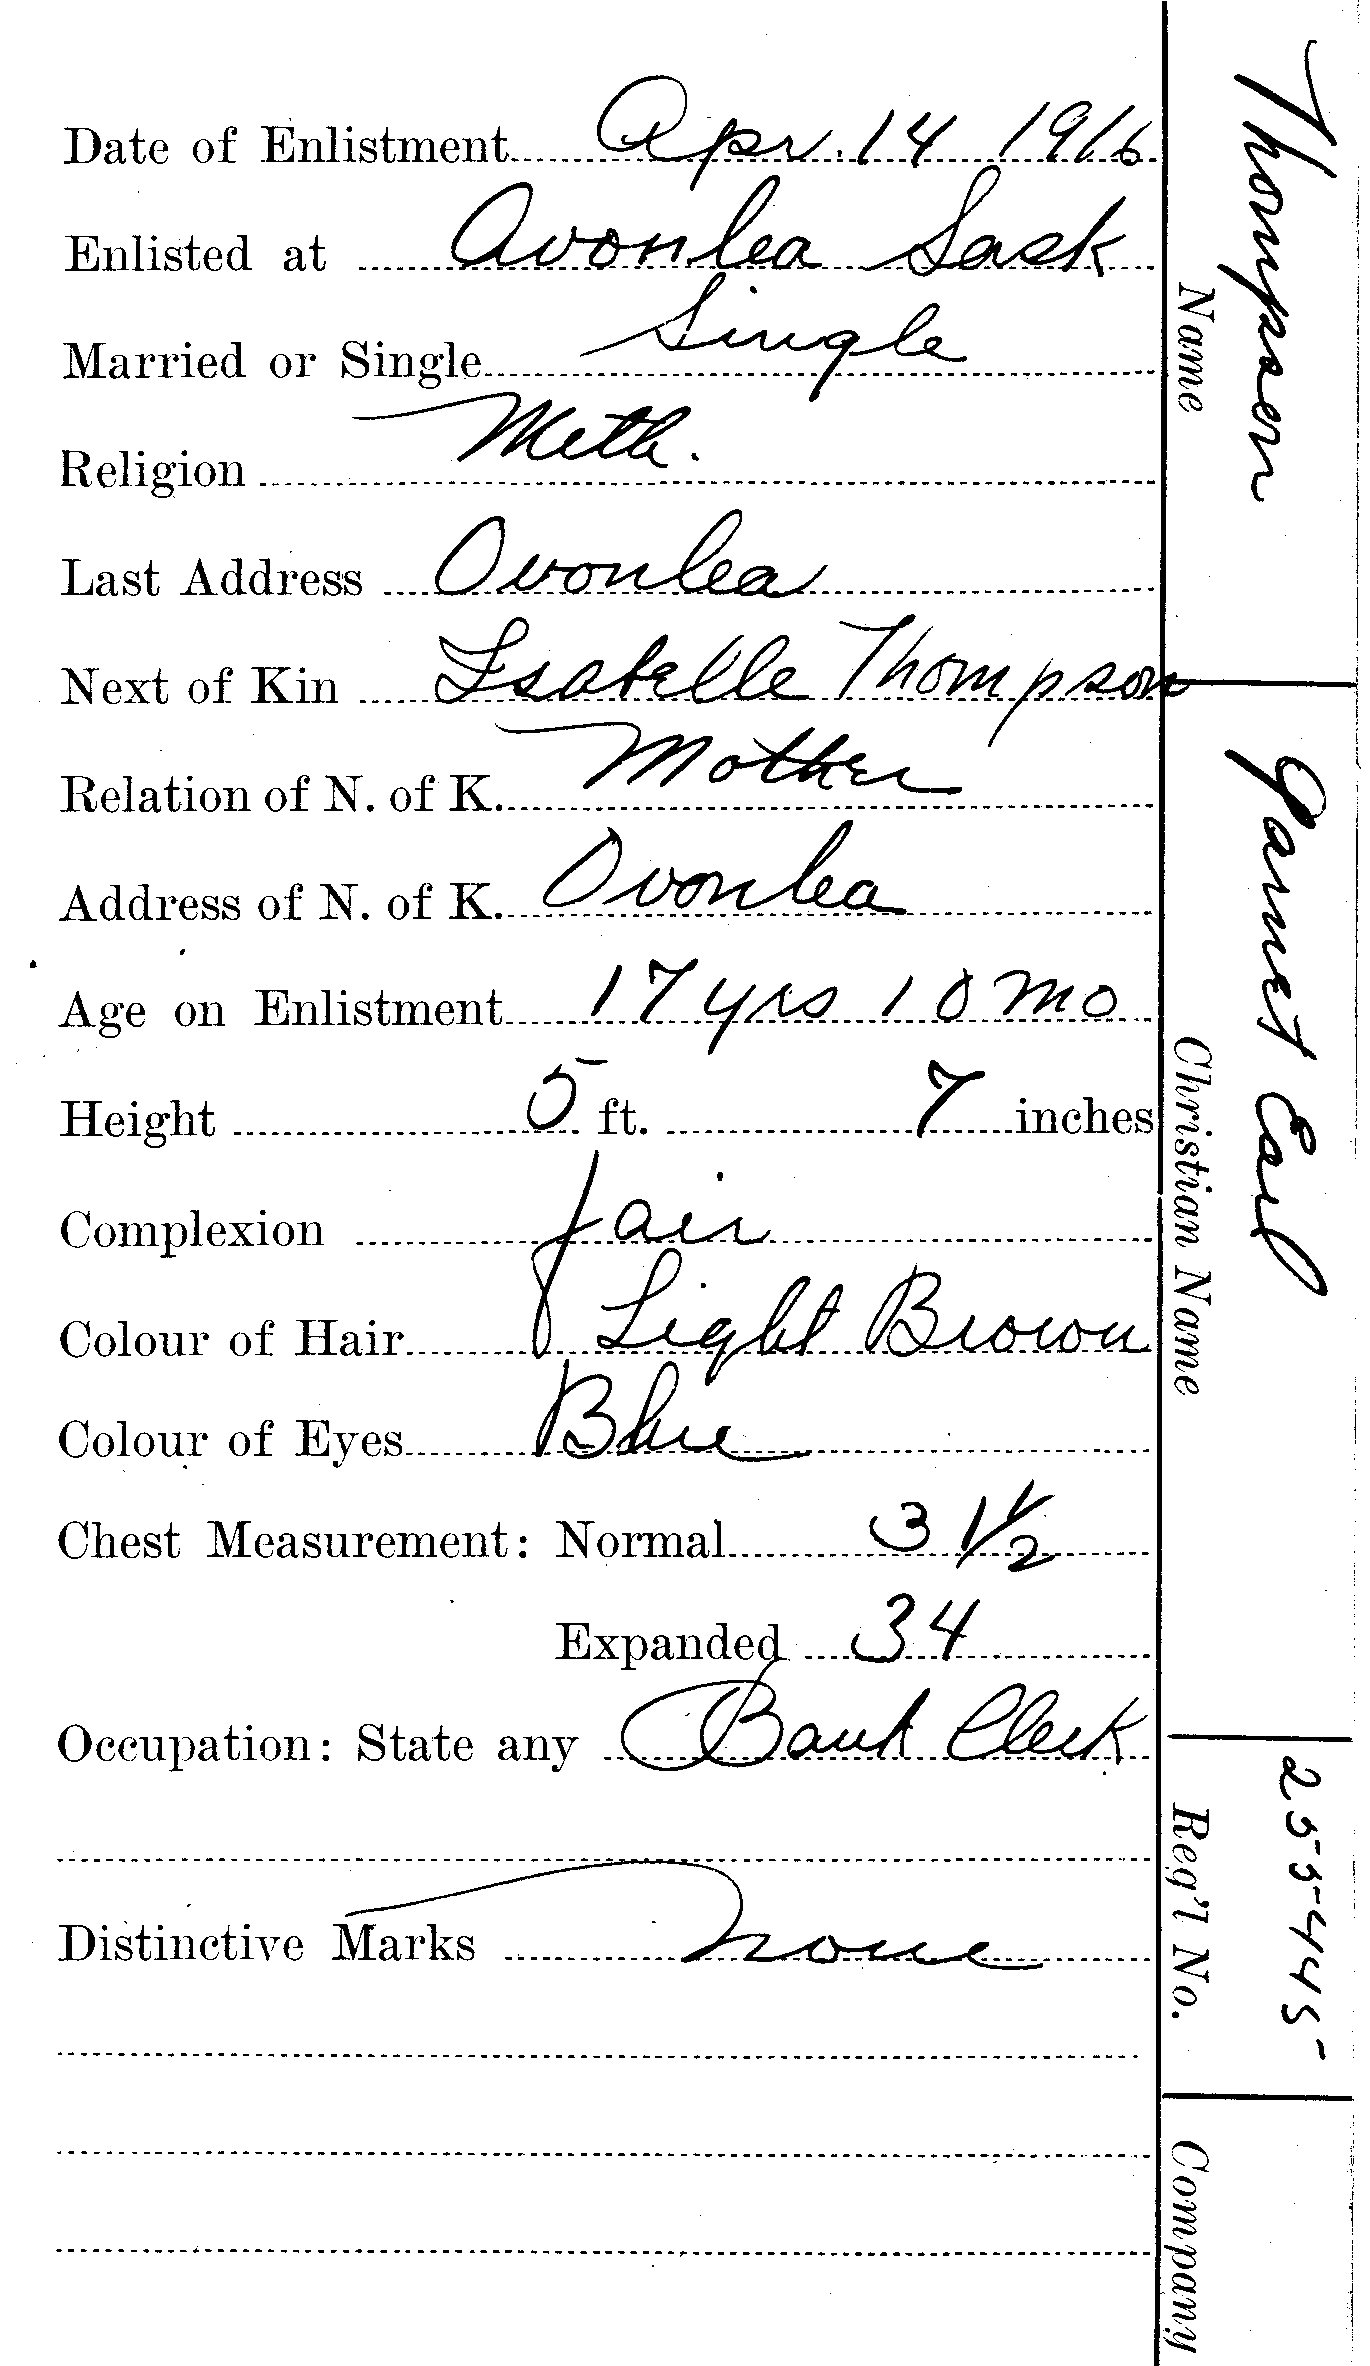 Date of Enlistment Apr. 14 1916
Enlisted at Avonlea Sask
Married or Single Single
Religion Meth.
Last Address Avonlea
Next of Kin Isabelle Thompson
Relation of N. of K. Mother
Address of N. of K. Avonlea
Age on Enlistment 17 yrs 10 mo
Height 5 ft. 7 inches
Complexion fair
Colour of Hair Light Brown
Colour of Eyes Blue
Chest Measurement: Normal 31½
Expanded 34
Occupation: State any Bank Clerk
Distinctive Marks None
Thompson
Name
Garnet Earl
Christian Name
255445
Reg'l No.
Company